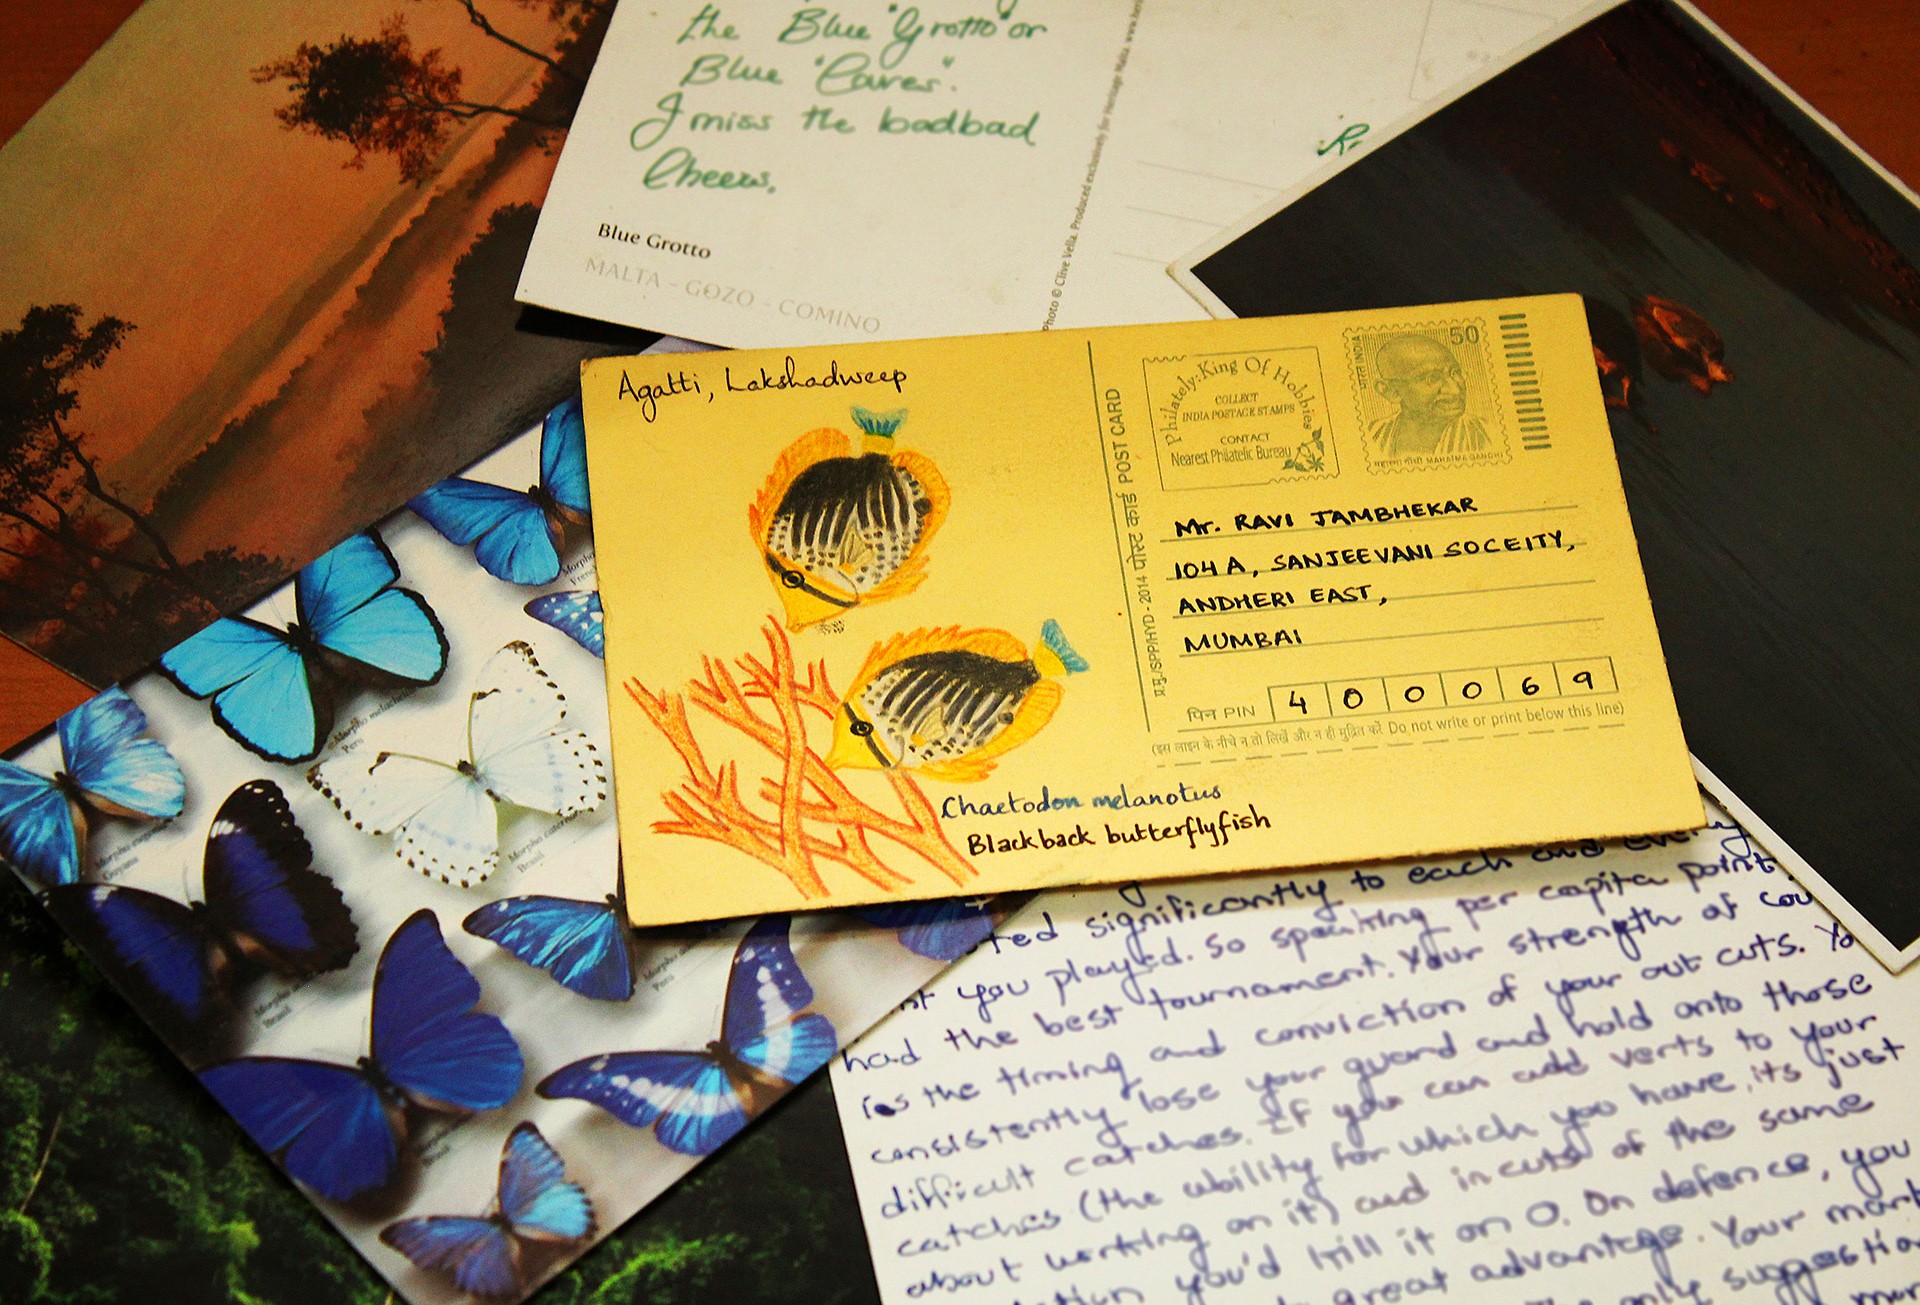 the Blue "Grotto" or
Blue "Caves".
I miss the badbad
Cheers,
Blue Grotto
MALTA - GOZO - COMINO
Photo © Clive Vella. Produced exclusively for Heritage Malta. www.
Agatti, Lakshadweep
Chaetodon melanotus
Blackback butterflyfish
POST CARD
पोस्ट कार्ड
प्र.मु./SPP/HYD - 2014
Philately: King Of Hobbies
COLLECT
INDIA POSTAGE STAMPS
CONTACT
Nearest Philatelic Bureau
भारत INDIA
50
महात्मा गांधी MAHATMA GANDHI
Mr. RAVI JAMBHEKAR
104 A, SANJEEVANI SOCEITY,
ANDHERI EAST,
MUMBAI
पिन PIN 4 0 0 0 6 9
(इस लाइन के नीचे न तो लिखें और न ही मुद्रित करें Do not write or print below this line)
Morpho
Peru
Morpho
Brasil
Morpho
Guyana
Morpho
Brasil
Morpho
Peru
significantly to each and every
you played. So speaking per capita point.
had the best tournament. Your strength of
is the timing and conviction of your out cuts.
consistently lose your guard and hold onto those
difficult catches. If you can add verts to your
catches (the ability for which you have, its just
about working on it) and in cuts of the same
you'd kill it on O. On defence, you
great advantage. Your
only